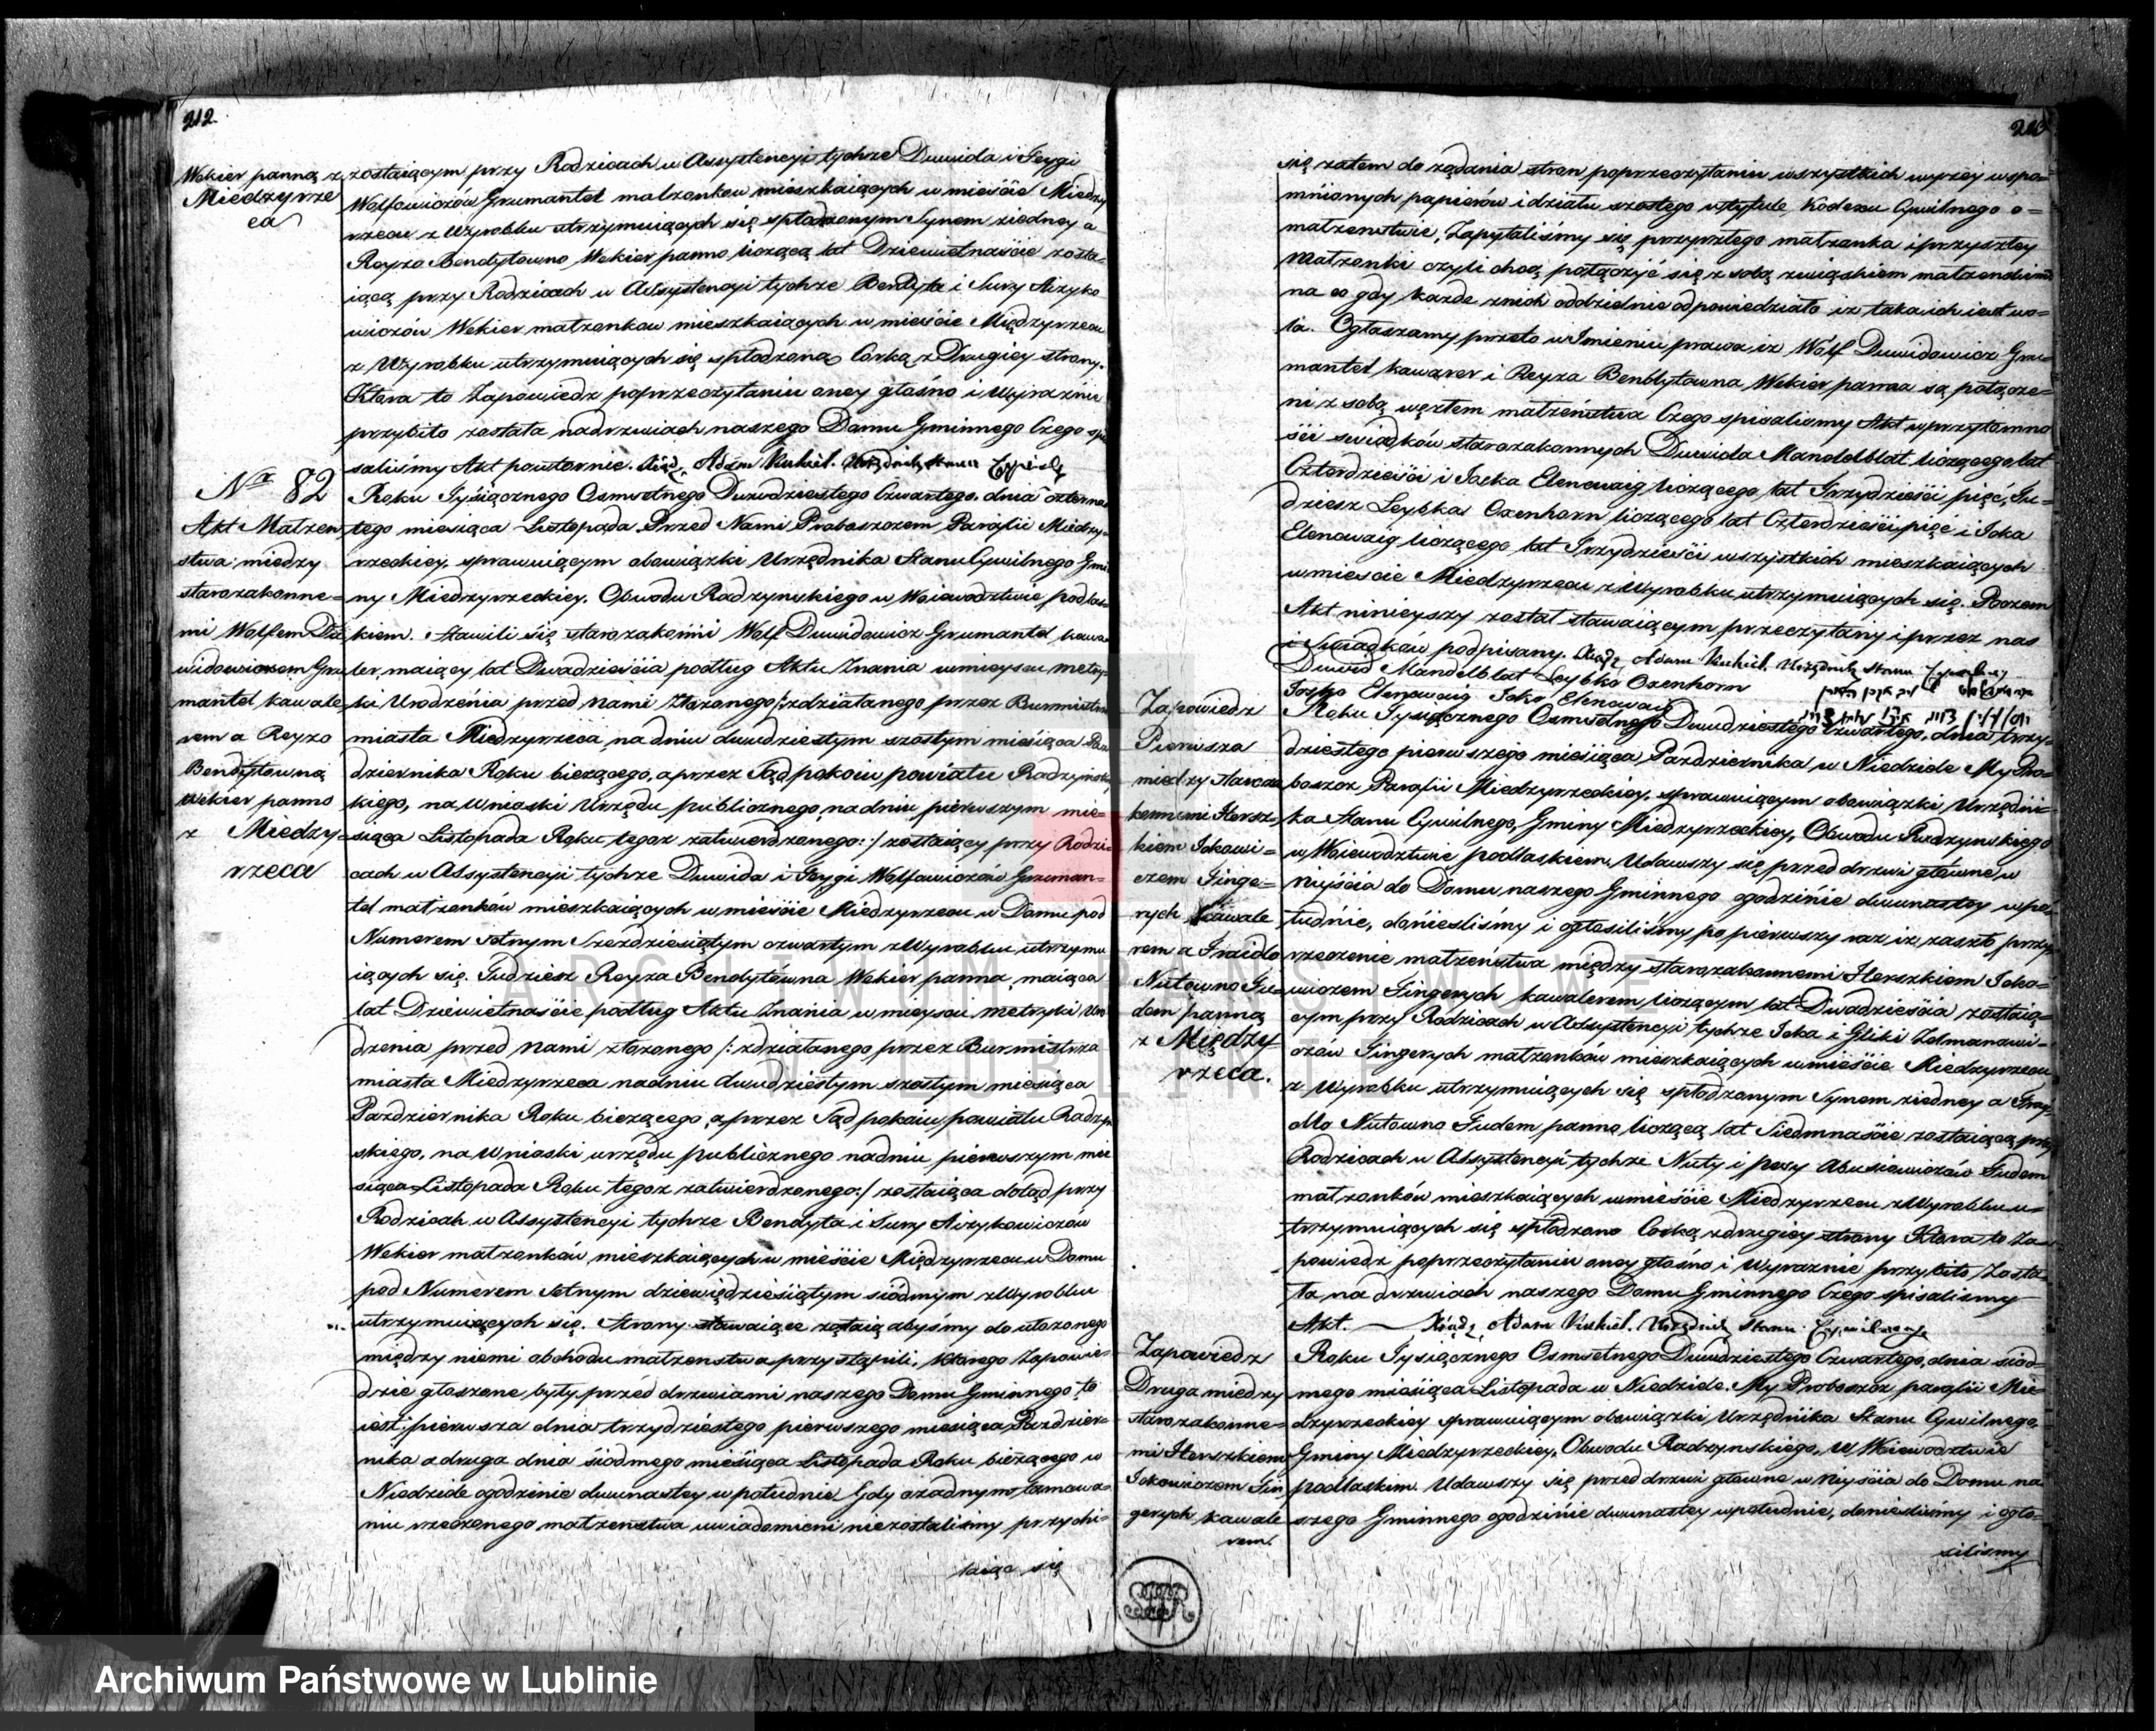 212.
Wekier panną z
Miedzyrze
ca
zostaiącym przy Rodzicach w Assystencyi tychże Dawida i Feygi
Wolfowiczów Grumantel małżonkow mieszkaiących w mieście Miedzy
rzecu z Wyrobku utrzymuiących się spłodzonym Synem ziedney a
Reyzo Bendytowno Wekier panno liczącą lat Dziewietnaście zosta=
iącą przy Rodzicach w Assystencyi tychże Bendyta i Sury Aizyko
wiczów Wekier małżonkow mieszkaiących w mieście Międzyrzecu
z Wyrobku utrzymuiących się spłodzoną Corką z Drugiey strony.
Ktora to Zapowiedz poprzeczytaniu oney głośno i wyraźnie
przybito została nadrzwiach naszego Domu Gminnego Czego spi
saliśmy Akt powtornie. Xiądz Adam Kukiel. Urzędnik Stanu Cywil
Nro 82
Akt Małżen
stwa między
starozakonne=
mi Wolfem Da
widowiczem Gru
mantel kawale
rem a Reyzo
Bendytowną
Wekier panno
z Miedzy=
rzeca
Roku Tysiącznego Osmsetnego Dwudziestego Czwartego. dnia czterna
tego miesiąca Listopada Przed Nami Proboszczem Parafii Miedzy=
rzeckiey, sprawuiącym obowiązki Urzędnika Stanu Cywilnego Gmi
ny Miedzyrzeckiey. Obwodu Radzynskiego w Woiewodztwie podlas=
kiem. Stawili się starozakonni Wolf Dawidowicz Grumantel kawa
ler maiący lat Dwadzieścia podług Aktu Znania wmieyscu metry=
ki Urodzenia przed Nami złożonego /: zdziałanego przez Burmistrza
miasta Miedzyrzeca na dniu dwudziestym szostym miesiąca Paz
dziernika Roku bieżącego, a przez Sąd pokoiu powiatu Radzyńs
kiego, na Wnioski Urzędu publicznego, na dniu pierwszym mie=
siąca Listopada Roku tegoż zatwierdzonego:/ zostaiący przy Rodzi=
cach w Assystencyi tychże Dawida i Feygi Wolfowiczów Gruman=
tel małżonków mieszkaiących w mieście Miedzyrzecu w Domu pod
Numerem setnym Sześdziesiątym czwartym z Wyrobku utrzymu
iących się. Tudziesz Reyza Bendytówna Wekier panna maiąca
lat Dziewietnaście podług Aktu Znania w mieyscu metryki Uro
dzenia przed Nami złożonego /: zdziałanego przez Burmistrza
miasta Miedzyrzeca nadniu dwudziestym szostym miesiąca
Pazdziernika Roku bieżącego, a przez Sąd pokoiu powiatu Radzyn
skiego, na Wnioski urzędu publicznego nadniu pierwszym mie
siąca Listopada Roku tegoż zatwierdzonego:/ zostaiąca dotąd przy
Rodzicah w Assystencyi tychże Bendyta i Sury Aizykowiczów
Wekier małżonków mieszkaiących w mieście Międzyrzecu w Domu
pod Numerem Setnym dziewiędziesiątym siódmym z Wyrobku
utrzymuiących się. Strony stawaiące żądaią abyśmy do ułożonego
między niemi obchodu małżenstwa przystąpili, którego Zapowie=
dzie głoszone były przed drzwiami naszego Domu Gminnego, to
iest: pierwsza dnia trzydziestego pierwszego miesiąca Pazdzier=
nika a druga dnia śiodmego miesiąca Listopada Roku bieżącego w
Niedziele ogodzinie dwunastey w południe. Gdy ożadnym tamowa=
niu rzeczonego małżenstwa uwiadomieni niezostalismy przychi=
laiąc się
się zatem do żądania stron poprzeczytaniu wszystkich wyżey wspo=
mnionych papierów i działu szostego wtytule Kodexu Cywilnego o=
małżenstwie, Zapytaliśmy się przyszłego małżonka i przyszłey
Małżonki czyli chcą połączyć się z sobą związkiem małżenskim
na co gdy każde znich oddzielnie odpowiedziało iż taka ich iest wo=
la. Ogłaszamy przeto w Imieniu prawa iż Wolf Dawidowicz Gru=
mantel kawaler i Reyza Bendytowna Wekier panna są połącze=
ni z sobą węzłem małżeństwa Czego spisalismy Akt wprzytomno
ści swiadków starozakonnych Dawida Mandelblat liczącego lat
Czterdzieści i Jocka Elenowaig liczącego lat Trzydzieści pięć, Tu=
dziesz Leybka Oxenhorn liczącego lat Czterdzieści pięć i Joka
Elenowaig liczącego lat Trzydzieści wszystkich mieszkaiących
w mieście Miedzyrzecu z Wyrobku utrzymuiących się. Poczem
Akt ninieyszy został stawaiącym przeczytany i przez nas
i Swiadków podpisany. Xiądz Adam Kukiel. Urzędnik Stanu Cywilnego
Dawid Mandelblat Leybko Oxenhorn
Josko Elenowaig Joko Elenowaig
Zapowiedz
Pierwsza
miedzy Staroza
konnemi Hersz=
kiem Jokowi=
czem Finge=
rych kawale
rem a Fraidlo
Nutowno Ju=
dem panną
z Między
rzeca.
Roku Tysiącznego Osmsetnego Dwudziestego Czwartego, dnia trzy=
dziestego pierwszego miesiąca Pazdziernika w Niedziele My Pro=
boszcz Parafii Miedzyrzeckiey, sprawuiącym obowiązki Urzędni=
ka Stanu Cywilnego, Gminy Miedzyrzeckiey, Obwodu Radzynskiego
w Woiewodztwie podlaskiem, Udawszy się przed drzwi głowne w
Niyścia do Domu naszego Gminnego ogodzinie dwunastey wpo=
łudnie, donieśliśmy i ogłosiliśmy po pierwszy raz iz zaszło przy
rzeczenie małżeństwa między starozakonnemi Herszkiem Joko=
wiczem Fingerych kawalerem liczącym lat Dwadzieścia zostaią=
cym przy Rodzicach w Assystencyi tychże Joka i Gliki Zelmanowi=
czów Fingerych małżonków mieszkaiących wmieście Miedzyrzecu
z Wyrobku utrzymuiących się spłodzonym Synem ziedney a Fray
dlo Nutowno Judem panno liczącą lat Siedmnaście zostaiącą przy
Rodzicach w Assystencyi tychże Nuty i pesy Abusiewiczów Judem
małżonków mieszkaiących wmieście Miedzyrzecu z Wyrobku u=
trzymuiących się spłodzono Corką zdrugiey strony Ktora to Za=
powiedz poprzeczytaniu oney głośno i wyraznie przybito Zosta=
ła na drzwiach naszego Domu Gminnego Czego spisalismy
Akt. Xiądz Adam Kukiel. Urzędnik Stanu Cywilnego
Zapowiedz
Druga miedzy
starozakonne=
mi Herszkiem
Jokowiczem Fin
gerych kawale
rem.
Roku Tysiącznego Osmsetnego Dwudziestego Czwartego, dnia siod=
mego miesiąca Listopada w Niedziele. My Proboszcz parafii Mie=
dzyrzeckiey sprawuiącym obowiązki Urzędnika Stanu Cywilnego,
Gminy Miedzyrzeckiey, Obwodu Radzynskiego, W Woiewodztwie
podlaskim. Udawszy się przed drzwi głowne w Niyścia do Domu na
szego Gminnego ogodzinie dwunastey wpołudnie, donieslismy i ogło=
silismy
ARCHIWUM PAŃSTWOWE
W LUBLINIE
Archiwum Państwowe w Lublinie